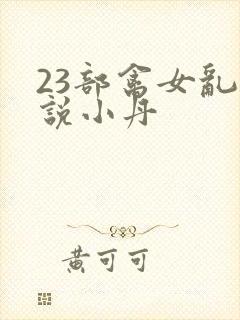 23部禽女亂
說小丹
黃可可